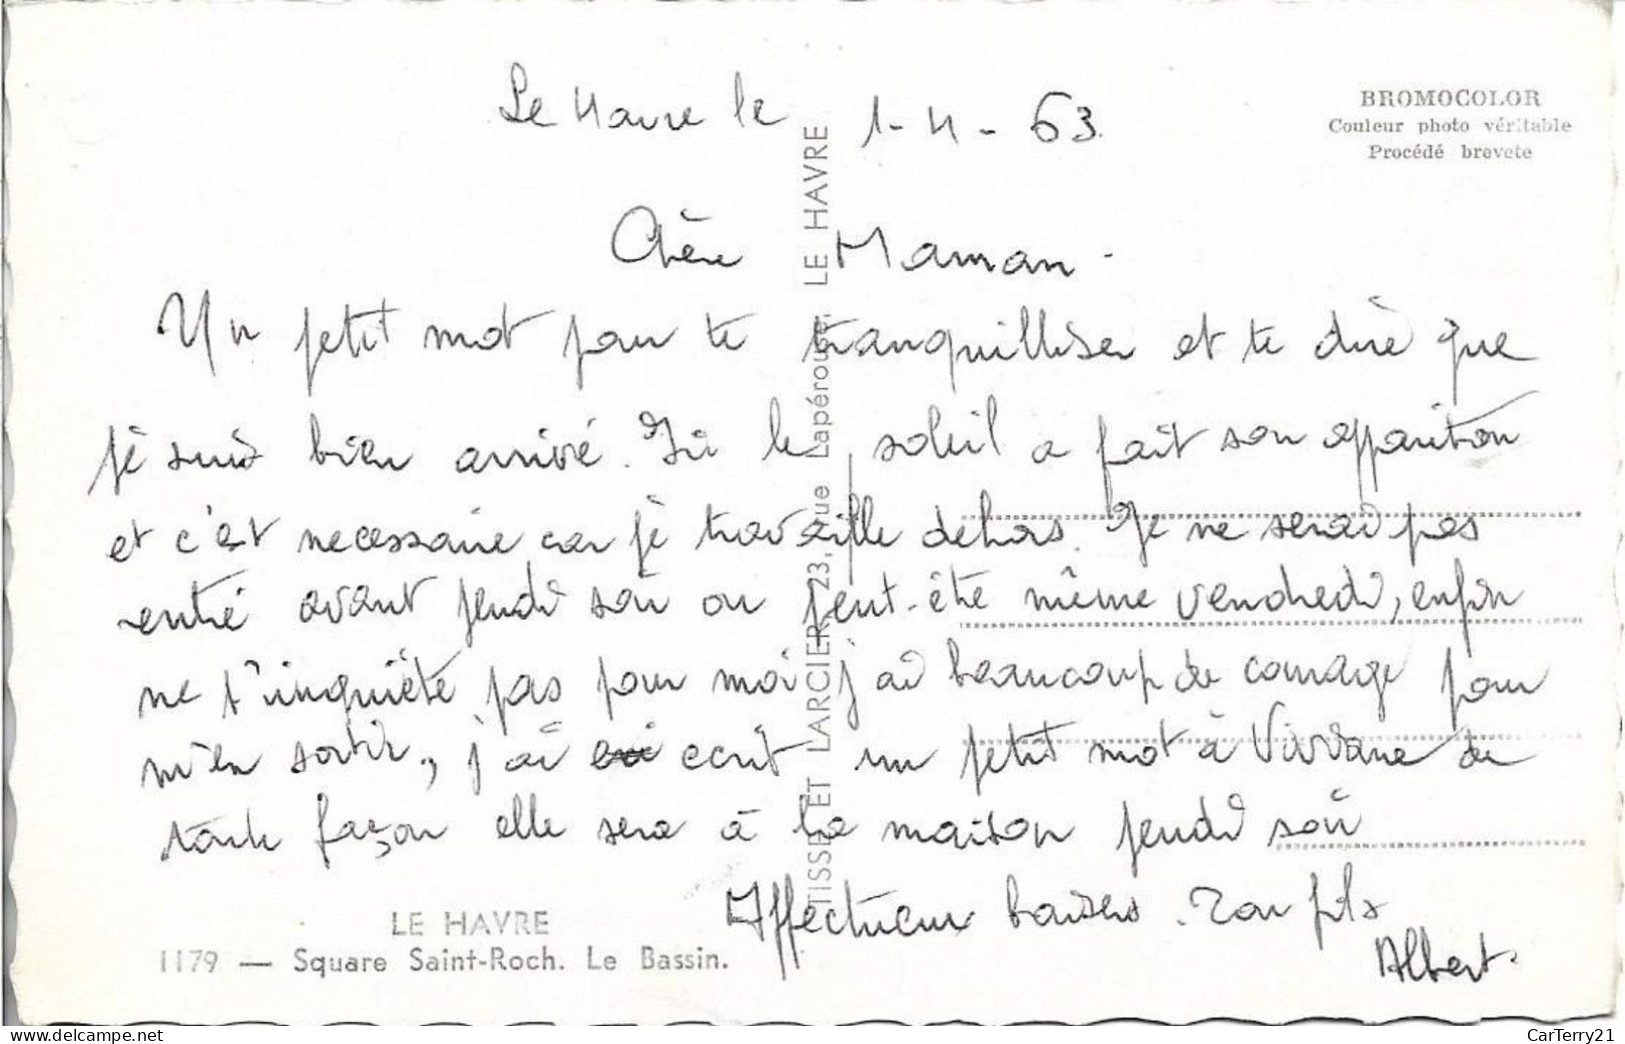 Le Havre le 1-4-63
BROMOCOLOR
Couleur photo véritable
Procédé breveté
Chère Maman -
Un petit mot pour te tranquilliser et te dire que
je suis bien arrivé. Ici le soleil a fait son apparition
et c'est necessaire car je travaille dehors. Je ne serai pas
rentré avant jeudi soir ou peut-être même vendredi, enfin
ne t'inquiète pas pour moi j'ai beaucoup de courage pour
m'en sortir, j'ai ecrit un petit mot à Viviane de
toute façon elle sera à la maison jeudi soir
Affectueux baisers. Ton fils
Albert.
TISSET ET LARCIER, 23, rue Lapérouse. LE HAVRE
LE HAVRE
1179 — Square Saint-Roch. Le Bassin.
www.delcampe.net
CarTerry21